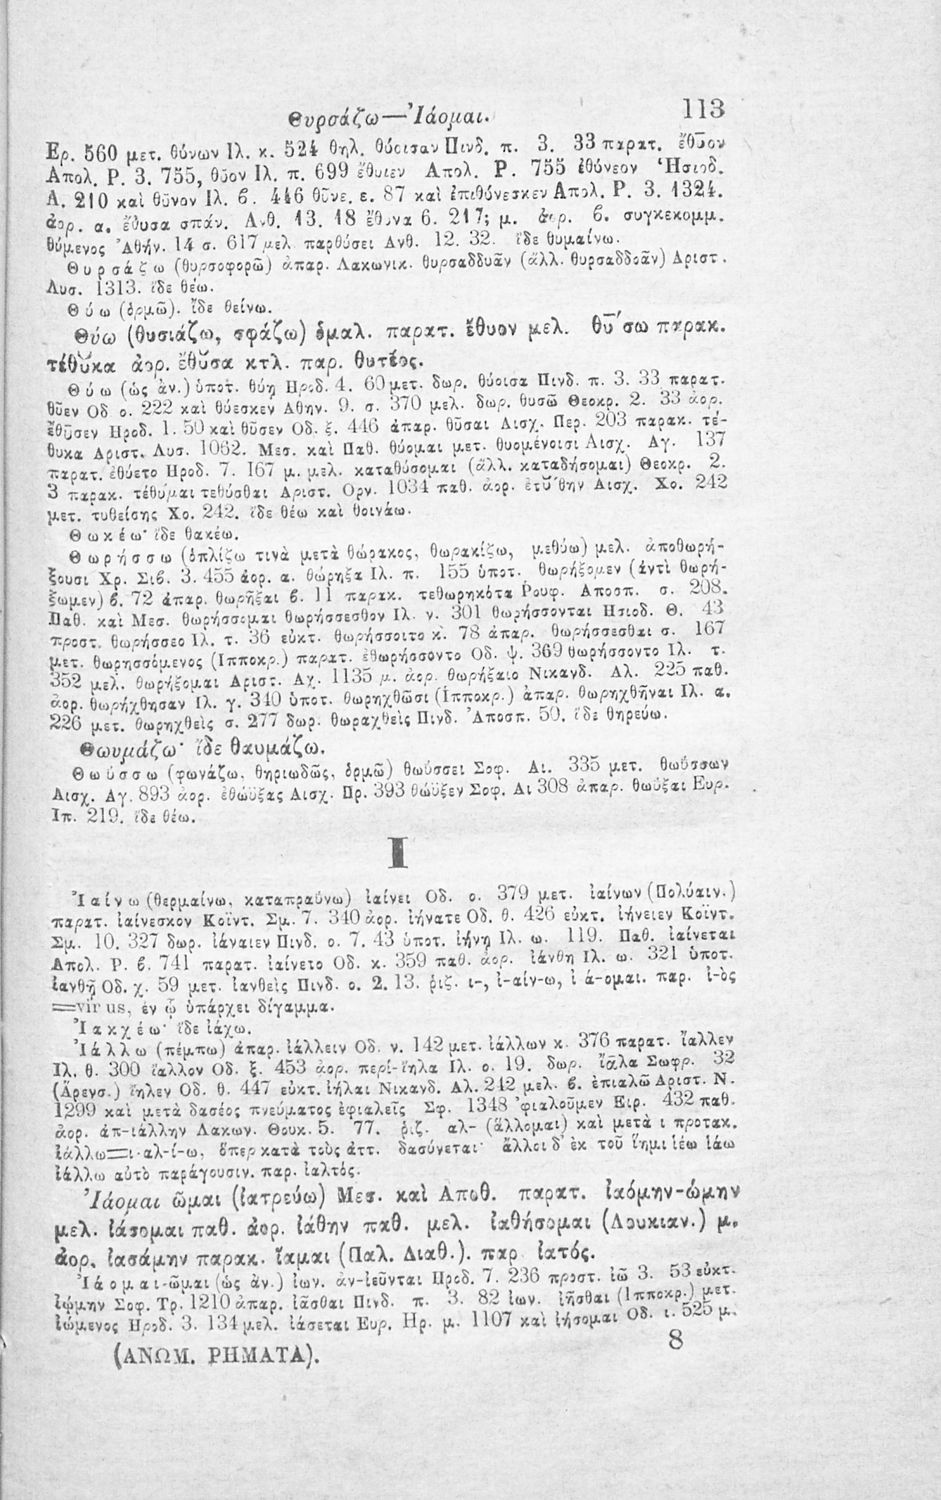 Θυρσάζω—Ἰάομαι. 113
Ερ. 560 μετ. θύνων Ιλ. κ. 524 θηλ. θύοισαν Πινδ. π. 3. 33 παρατ. ἔθῡον
Απολ. Ρ. 3. 755, θῦον Ιλ. π. 699 ἔθυιεν Απολ. Ρ. 755 ἐθύνεον Ἡσιοδ.
Α. 210 καὶ θῦνον Ιλ. β. 446 θῦνε. ε. 87 καὶ ἐπιθύνεσκεν Απολ. Ρ. 3. 1324.
ἀορ. α. ἔθυσα σπάν. Ανθ. 13. 18 ἔθυνα 6. 217; μ. ἀορ. β. συγκεκομμ.
θύμενος Ἀθήν. 14 σ. 617 μελ. παρθύσει Ανθ. 12. 32. ἴδε θυμαίνω.
Θυρσάζω (θυρσοφορῶ) ἀπαρ. Λακωνικ. θυρσαδδυᾶν (ἀλλ. θυρσαδδοᾶν) Αριστ.
Λυσ. 1313. ἴδε θέω.
Θύω (ὁρμῶ). ἴδε θείνω.
Θύω (θυσιάζω, σφάζω) ὁμαλ. παρατ. ἔθυον μελ. θῡ́σω παρακ.
τέθῠκα ἀορ. ἔθῡσα κτλ. παρ. θυτέος.
Θύω (ὡς ἀν.) ὑποτ. θύῃ Ηροδ. 4. 60 μετ. δωρ. θύοισα Πινδ. π. 3. 33 παρατ.
θῦεν Οδ ο. 222 καὶ θύεσκεν Αθην. 9. σ. 370 μελ. δωρ. θυσῶ Θεοκρ. 2. 33 ἀορ.
ἔθῡσεν Ηροδ. 1. 50 καὶ θῦσεν Οδ. ξ. 446 ἀπαρ. θῦσαι Αισχ. Περ. 203 παρακ. τέ-
θυκα Αριστ. Λυσ. 1062. Μεσ. καὶ Παθ. θύομαι μετ. θυομένοισι Αισχ. Αγ. 137
παρατ. ἐθύετο Ηροδ. 7. 167 μ. μελ. καταθύσομαι (ἀλλ. καταδήσομαι) Θεοκρ. 2.
3 παρακ. τέθυμαι τεθύσθαι Αριστ. Ορν. 1034 παθ. ἀορ. ἐτῠ́θην Αισχ. Χο. 242
μετ. τυθείσης Χο. 242. ἴδε θέω καὶ θοινάω.
Θωκέω· ἴδε θακέω.
Θωρήσσω (ὁπλίζω τινὰ μετὰ θώρακος, θωρακίζω, μεθύω) μελ. ἀποθωρή-
ξουσι Χρ. Σιβ. 3. 455 ἀορ. α. θώρηξα Ιλ. π. 155 ὑποτ. θωρήξομεν (ἀντὶ θωρή-
ξωμεν) β. 72 ἀπαρ. θωρῆξαι β. 11 παρακ. τεθωρηκότα Ρουφ. Αποσπ. σ. 208.
Παθ. καὶ Μεσ. θωρήσσομαι θωρήσσεσθον Ιλ. ν. 301 θωρήσσονται Ησιοδ. Θ. 43
προστ. θωρήσσεο Ιλ. τ. 36 εὐκτ. θωρήσσοιτο κ. 78 ἀπαρ. θωρήσσεσθαι σ. 167
μετ. θωρησσόμενος (Ιπποκρ.) παρατ. ἐθωρήσοντο Οδ. ψ. 369 θωρήσσοντο Ιλ. τ.
352 μελ. θωρήξομαι Αριστ. Αχ. 1135 μ. ἀορ. θωρήξαιο Νικανδ. Αλ. 225 παθ.
ἀορ. θωρήχθησαν Ιλ. γ. 340 ὑποτ. θωρηχθῶσι (Ιπποκρ.) ἀπαρ. θωρηχθῆναι Ιλ. α.
226 μετ. θωρηχθεὶς σ. 277 δωρ. θωραχθεὶς Πινδ. Ἀποσπ. 50. ἴδε θηρεύω.
Θωυμάζω· ἴδε θαυμάζω.
Θωύσσω (φωνάζω, θηριωδῶς, ὁρμῶ) θωύσσει Σοφ. Αι. 335 μετ. θωΰσσων
Αισχ. Αγ. 893 ἀορ. ἐθώϋξας Αισχ. Πρ. 393 θώϋξεν Σοφ. Αι 308 ἀπαρ. θωΰξαι Ευρ.
Ιπ. 219. ἴδε θέω.
Ι
Ἰαίνω (θερμαίνω, καταπραΰνω) ἰαίνει Οδ. ο. 379 μετ. ἰαίνων (Πολύαιν.)
παρατ. ἰαίνεσκον Κοϊντ. Σμ. 7. 340 ἀορ. ἰήνατε Οδ. θ. 426 εὐκτ. ἰήνειεν Κοϊντ.
Σμ. 10. 327 δωρ. ἰάναιεν Πινδ. ο. 7. 43 ὑποτ. ἰήνῃ Ιλ. ω. 119. Παθ. ἰαίνεται
Απολ. Ρ. β. 741 παρατ. ἰαίνετο Οδ. κ. 359 παθ. ἀορ. ἰάνθη Ιλ. ω. 321 ὑποτ.
ἰανθῇ Οδ. χ. 59 μετ. ἰανθεὶς Πινδ. ο. 2. 13. ῥιζ. ι-, ἰ-αίν-ω, ἰ ά-ομαι. παρ. ἰ-ὸς
=virus, ἐν ᾧ ὑπάρχει δίγαμμα.
Ἰακχέω· ἴδε ἰάχω.
Ἰάλλω (πέμπω) ἀπαρ. ἰάλλειν Οδ. ν. 142 μετ. ἰάλλων κ. 376 παρατ. ἴαλλεν
Ιλ. θ. 300 ἴαλλον Οδ. ξ. 453 ἀορ. περι-ίηλα Ιλ. ο. 19. δωρ. ἴᾱλα Σωφρ. 32
(Ἀρενσ.) ἴηλεν Οδ. θ. 447 εὐκτ. ἰήλαι Νικανδ. Αλ. 242 μελ. β. ἐπιαλῶ Αριστ. Ν.
1299 καὶ μετὰ δασέος πνεύματος ἐφιαλεῖς Σφ. 1348 'φιαλοῦμεν Ειρ. 432 παθ.
ἀορ. ἀπ-ιάλλην Λακων. Θουκ. 5. 77. ῥιζ. αλ- (ἄλλομαι) καὶ μετὰ ι προτακ.
ἰάλλω=ι-αλ-ί-ω, ὅπερ κατὰ τοὺς ἀττ. δασύνεται· ἄλλοι δ' ἐκ τοῦ ἵημι ἱέω ἱάω
ἰάλλω αὐτὸ παράγουσιν. παρ. ἰαλτός.
Ἰάομαι ῶμαι (ἰατρεύω) Μεσ. καὶ Αποθ. παρατ. ἰαόμην-ώμην
μελ. ἰάσομαι παθ. ἀορ. ἰάθην παθ. μελ. ἰαθήσομαι (Λουκιαν.) μ.
ἀορ. ἰασάμην παρακ. ἴαμαι (Παλ. Διαθ.). παρ. ἰατός.
Ἰάομαι-ῶμαι (ὡς ἀν.) ἰων. ἀν-ιεῦνται Ηροδ. 7. 236 προστ. ἰῶ 3. 53 εὐκτ.
ἰῴμην Σοφ. Τρ. 1210 ἀπαρ. ἰᾶσθαι Πινδ. π. 3. 82 ἰων. ἰῆσθαι (Ιπποκρ.) μετ.
ἰώμενος Ηροδ. 3. 134 μελ. ἰάσεται Ευρ. Ηρ. μ. 1107 καὶ ἰήσομαι Οδ. ι. 525 μ.
(ΑΝΩΜ. ΡΗΜΑΤΑ). 8